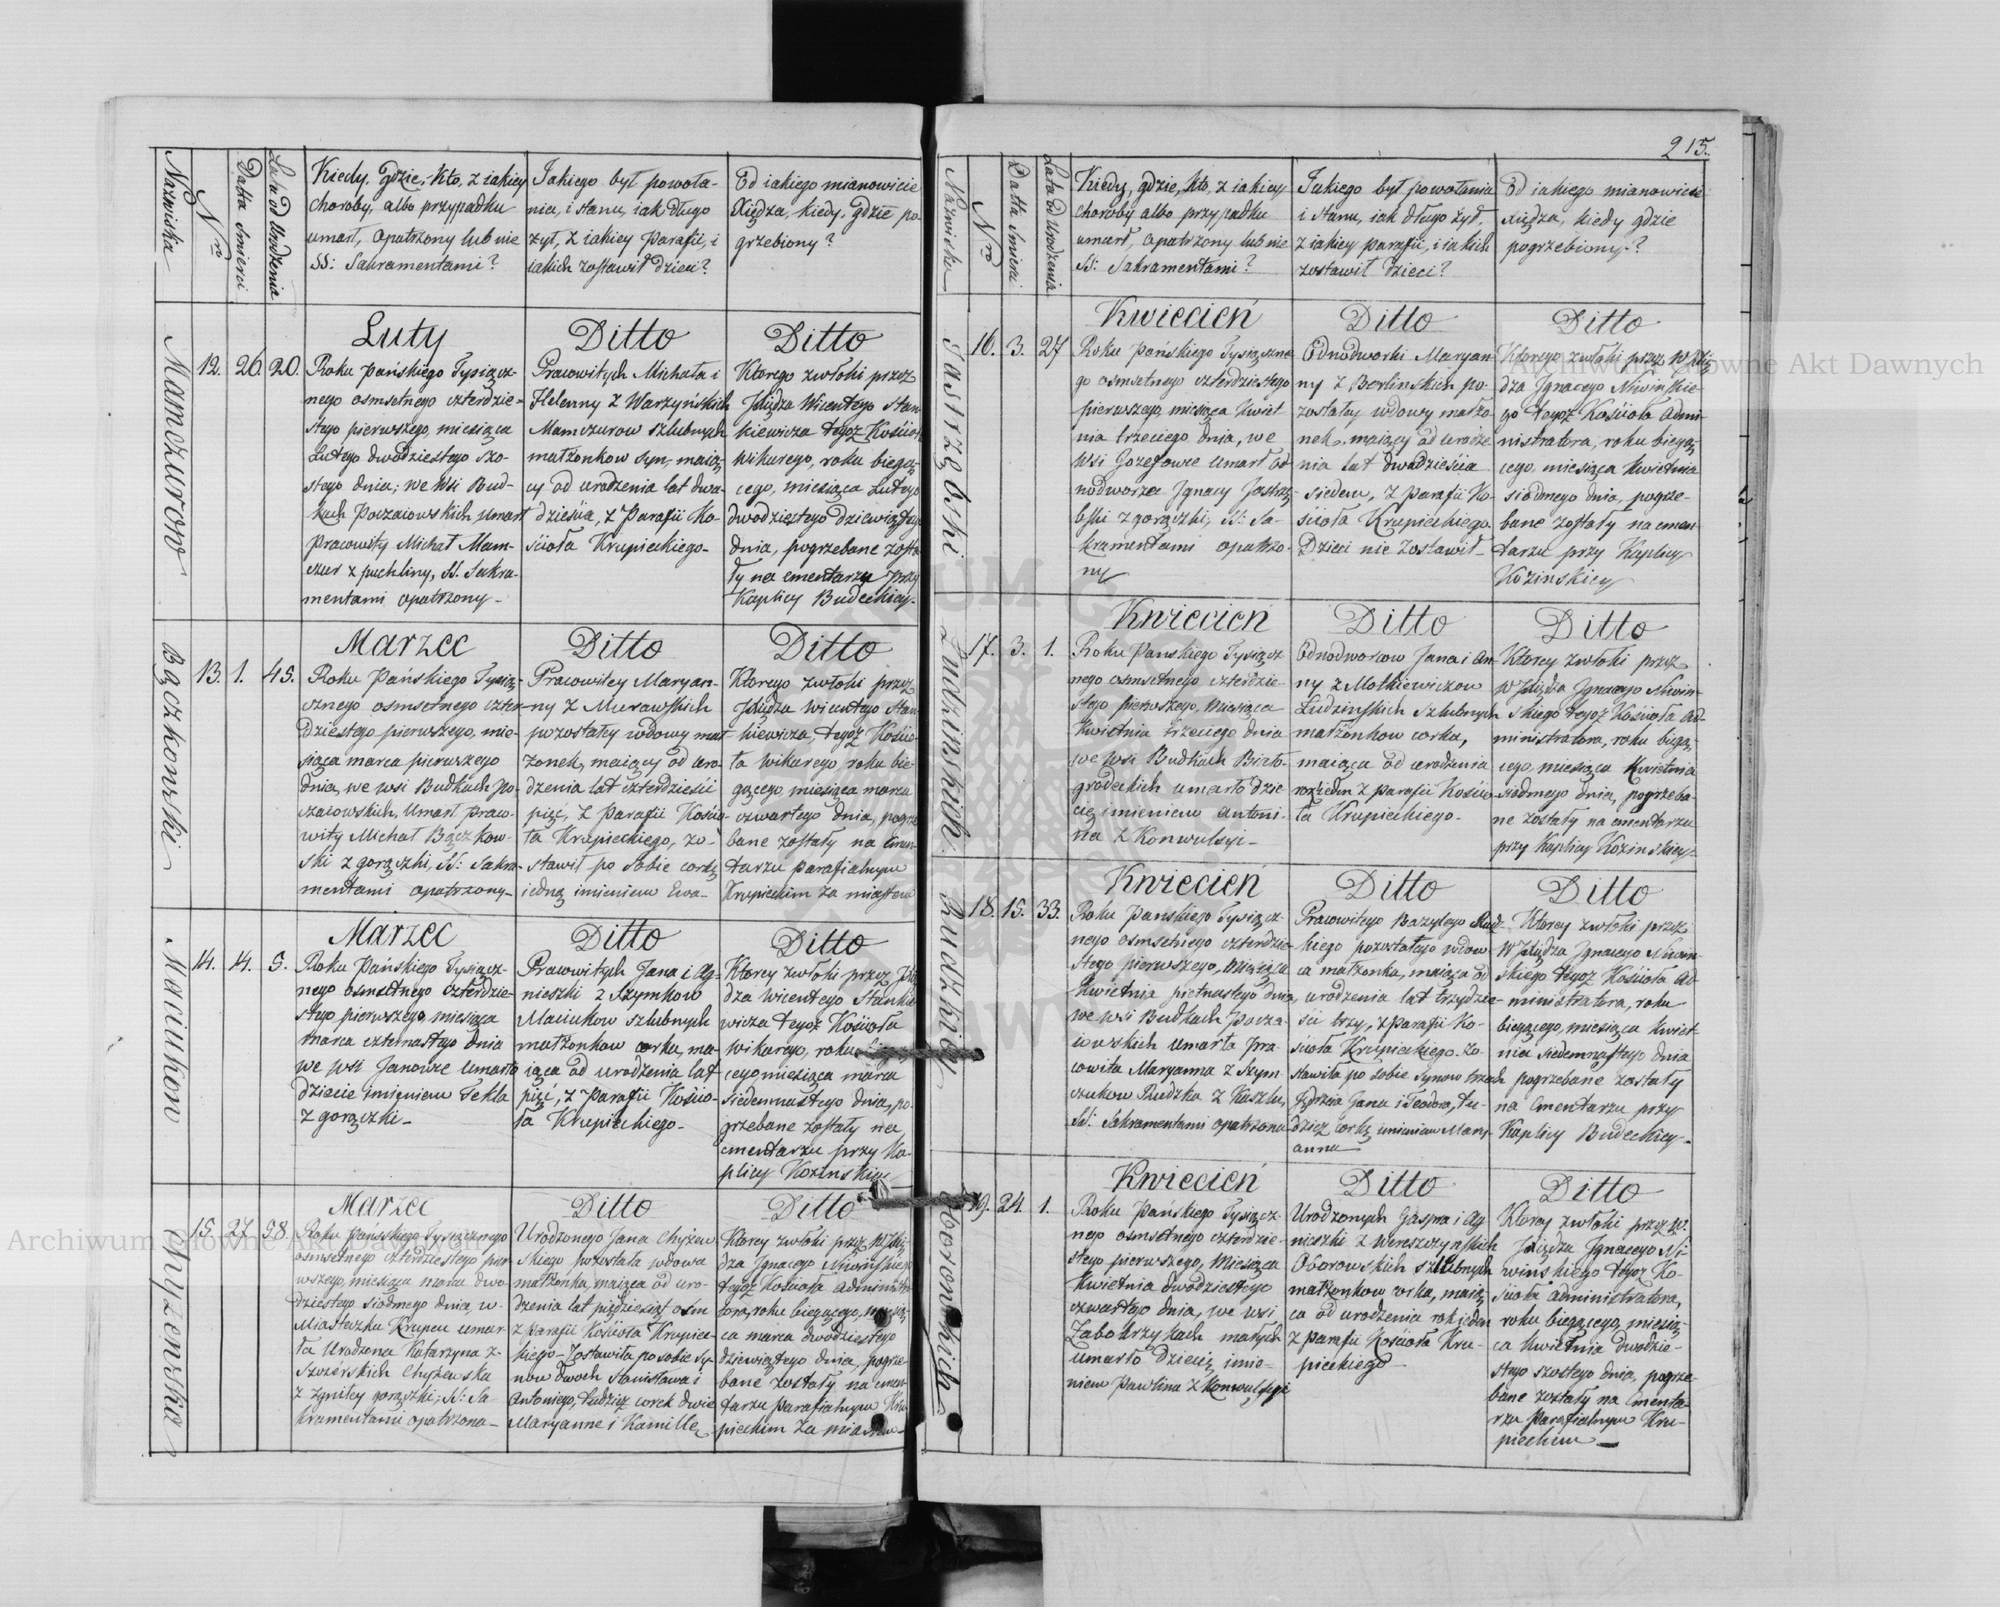 215.
Nazwiska
Nro
Datta śmierci
Lata od Urodzenia
Kiedy, gdzie, kto, z iakiey
choroby, albo przypadku
umarł, opatrzony lub nie
SS: Sakramentami?
Jakiego był powoła-
nia, i stanu, iak długo
żył, z iakiey parafii, i
iakich zostawił dzieci?
Od iakiego mianowicie
Xiędza, kiedy, gdzie po-
grzebiony?
Mamczurow
12. 26. 20.
Luty
Roku pańskiego Tysiącz-
nego osmsetnego czterdzie-
stego pierwszego, miesiąca
Lutego dwódziestego szo-
stego dnia; we wsi Bud-
kach Poczaiowskich umarł
pracowity Michał Mam-
czur z puchliny, SS. Sakra-
mentami opatrzony-
Ditto
Pracowitych Michała i
Helenny z Warzyńskich
Mamczurow szlubnych
małżonkow syn, maią-
cy od urodzenia lat dwa-
dzieścia, z Parafii Ko-
ścioła Krupieckiego-
Ditto
Ktorego zwłoki przez
Xiędza Wicentego Stan-
kiewicza tegoż Kościoł
Wikarego, roku biegą-
cego, miesiąca Lutego
dwodziestego dziewiątego
dnia, pogrzebane zosta-
ły na cmentarzu przy
Kaplicy Budeckiey-
Bączkowski
13. 1. 45.
Marzec
Roku Pańskiego Tysią-
cznego osmsetnego czter-
dziestego pierwszego, mie-
siąca marca pierwszego
dnia, we wsi Budkach Po-
czaiowskich, Umarł praco-
wity Michał Bączkow-
ski z gorączki, SS: Sakra-
mentami opatrzony-
Ditto
Pracowitey Maryan-
ny z Murawskich
pozostałey wdowy mał-
żonek, maiący od uro-
dzenia lat czterdzieści
pięć, z Parafii Kościo-
ła Krupieckiego, zo-
stawił po sobie corkę
iedną imieniem Ewa-
Ditto
Ktorego zwłoki przez
Xiędza Wicentego Stan-
kiewicza, tegoż Kościo-
ła wikarego roku bie-
gącego, miesiąca marca
czwartego dnia, pogrze
bane zostały na cmen-
tarzu parafialnym
Krupieckim za miastem
Maciukow
14. 14. 5.
Marzec
Roku Pańskiego Tysiącz-
nego osmsetnego czterdzie-
stego pierwszego miesiąca
marca czternastego dnia
we wsi Janowce umarło
dziecie imieniem Tekla
z gorączki-
Ditto
Pracowitych Jana i Ag-
nieszki z Szymkow
Maciukow szlubnych
małżonkow corka, ma-
iąca od urodzenia lat
pięć, z Parafii Kościo-
ła Krupieckiego-
Ditto
Ktorey zwłoki przez Xię
dza Wicentego Stankie
wicza tegoż Kościoła
Wikarego, roku
cego miesiąca marca
siedemnastego dnia, po-
grzebane zostały na
cmentarzu przy Ka-
plicy Kozinskiey
Chyżewska
15. 27. 58.
Marzec
Roku Pańskiego Tysiącznego
osmsetnego czterdziestego pier
wszego, miesiąca marca dwo-
dziestego siodmego dnia, w-
Miasteczku Krupcu umar-
ła Urodzona Katarzyna z-
Szczerskich Chyżewska
z zgniłey gorączki, SS: Sa-
kramentami opatrzona-
Ditto
Urodzonego Jana Chyżew
skiego pozostała wdowa
małżonka, maiąca od uro-
dzenia lat piędziesiąt ośm
z parafii Kościoła Krupiec-
kiego- Zostawiła po sobie sy-
now dwoch Stanisława i
Antoniego, tudzież corek dwie
Maryanne i Kamille,
Ditto
Ktorey zwłoki przez WXię-
dza Ignacego Niwińskiego
tegoż Kościoła administr
tora, roku biegącego, miesią-
ca marca dwodziestego
dziewiątego dnia, pogrze-
bane zostały na cmen
tarzu parafialnym Kru
pieckim za miastem-
Nazwisko
Nro
Datta śmierci
Lata od Urodzenia
Kiedy, gdzie, kto, z iakiey
choroby albo przypadku
umarł, opatrzony lub nie
SS: Sakramentami?
Jakiego był powołania
i stanu, iak długo żył,
z iakiey parafii, i iakich
zostawił dzieci?
Od iakiego mianowicie
xiędza, kiedy gdzie
pogrzebiony?
Jastrzębski
16. 3. 27
Kwiecień
Roku Pańskiego Tysiączne
go osmsetnego czterdziestego
pierwszego, miesiąca kwiet
nia trzeciego dnia, we
wsi Jozefowce umarł od-
nodworza Ignacy Jastrzę
bski z gorączki, SS: Sa-
kramentami opatrzo-
ny
Ditto
Odnodworki Maryan
ny z Berlinskich po-
zostałey wdowy małżo
nek, maiący od urodze
nia lat dwadzieścia
siedem, z Parafii Ko-
ścioła Krupieckiego
Dzieci nie zostawił-
Ditto
Ktorego zwłoki przez WXię
dza Ignacego Niwińskie-
go tegoż Kościoła admi-
nistratora, roku biegą-
cego, miesiąca kwietnia
siodmego dnia, pogrze-
bane zostały na cmen
tarzu przy Kaplicy
Kozinskiey
Ludzinskich
17. 3. 1.
Kwiecień
Roku Panskiego Tysiącz
nego osmsetnego czterdzie-
stego pierwszego, miesiąca
Kwietnia trzeciego dnia
we wsi Budkach Biało-
grodeckich umarło dzie
cię imieniem Antoni-
na z Konwulsyi-
Ditto
Odnodworcow Jana i An
ny z Motkiewiczow
Ludzinskich szlubnych
małżonkow corka,
maiąca od urodzenia
rok ieden z parafii Kościo
ła Krupieckiego-
Ditto
Ktorey zwłoki przez
W Xiędza Ignacego Niwin-
skiego tegoż Kościoła ad-
ministratora, roku biegą-
cego, miesiąca Kwietnia
siodmego dnia, pogrzeba-
ne zostały na cmentarzu
przy Kaplicy Kozinskiey
Rudzkiey
18. 15. 33.
Kwiecień
Roku Panskiego Tysiącz-
nego osmsetnego czterdzie-
stego pierwszego, miesiąca
kwietnia pietnastego dnia,
we wsi Budkach Pocza-
iowskich umarła pra-
cowita Maryanna z Szym-
czukow Rudzka z Kaszlu,
SS: Sakramentami opatrzona
Ditto
Pracowitego Bazylego Rudz-
kiego pozostałego wdow
ca małżonka, maiąca od
urodzenia lat trzydzie-
ści trzy, z parafii Ko-
ścioła Krupieckiego. Zo-
stawiła po sobie synow trzech
Jędrzeia Jana i Teodora, tu-
dzież corkę imieniem Mary-
anna
Ditto
Ktorey zwłoki przez
W Xiędza Ignacego Niwin-
skiego tegoż Kościoła Ad-
ministratora, roku
biegącego, miesiąca kwiet
nia siedemnastego dnia
pogrzebane zostały
na Cmentarzu przy
Kaplicy Budeckiey-
Oborowskich
19. 24. 1.
Kwiecień
Roku Pańskiego Tysiącz
nego osmsetnego czterdzie-
stego pierwszego, miesiąca
Kwietnia dwodziestego
czwartego dnia, we wsi
Zabokrzykach małych
umarło dziecię imie-
niem Pawlina z Konwulsyi
Ditto
Urodzonych Gaspra i Ag
nieszki z Wereszczyńskich
Oborowskich szlubnych
małżonkow corka, maią
ca od urodzenia rok ieden
z parafii Kościoła Kru-
pieckiego
Ditto
Ktorey zwłoki przez W.
Xiędza Ignacego Ni-
winskiego tegoż Ko-
ścioła administratora,
roku biegącego, miesią-
ca kwietnia dwodzie-
stego szostego dnia, pogrze-
bane zostały na Cmenta-
rzu Parafialnym Kru-
pieckim-
Archiwum Główne Akt Dawnych
Archiwum Główne Akt Dawnych